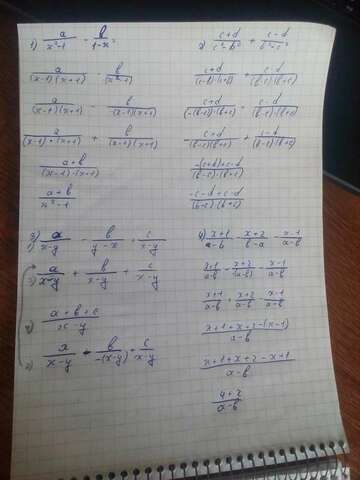 1) a/(x²-1) - b/(1-x²)
a/((x-1)(x+1)) b/(x²-1)
a/((x-1)(x+1)) - b/(-(x-1)(x+1))
a/((x-1)·(x+1)) + b/((x-1)(x+1))
(a+b)/((x-1)·(x+1))
(a+b)/(x²-1)
2) (c+d)/(c²-b²) + (c-d)/(b²-c²)
(c+d)/((c-b)·(c+b)) + (c-d)/((b-c)·(b+c))
(c+d)/(-(b-c)·(b+c)) + (c-d)/((b-c)·(b+c))
(c+d)/(-(b-c)(b+c)) + (c-d)/((b-c)·(b+c))
(-(c+d)+c-d)/((b-c)·(b+c))
(-c-d+c-d)/((b-c)·(b+c))
3) a/(x-y) - b/(y-x) + c/(x-y)
3) a/(x-y) + b/(x-y) + c/(x-y)
4) (a+b+c)/(x-y)
2) a/(x-y) - b/(-(x-y)) + c/(x-y)
4) (x+1)/(a-b) - (x+2)/(b-a) - (x-1)/(a-b)
(x+1)/(a-b) - (x+2)/(-(a-b)) - (x-1)/(a-b)
(x+1)/(a-b) + (x+2)/(a-b) - (x-1)/(a-b)
(x+1+x+2-(x-1))/(a-b)
(x+1+x+2-x+1)/(a-b)